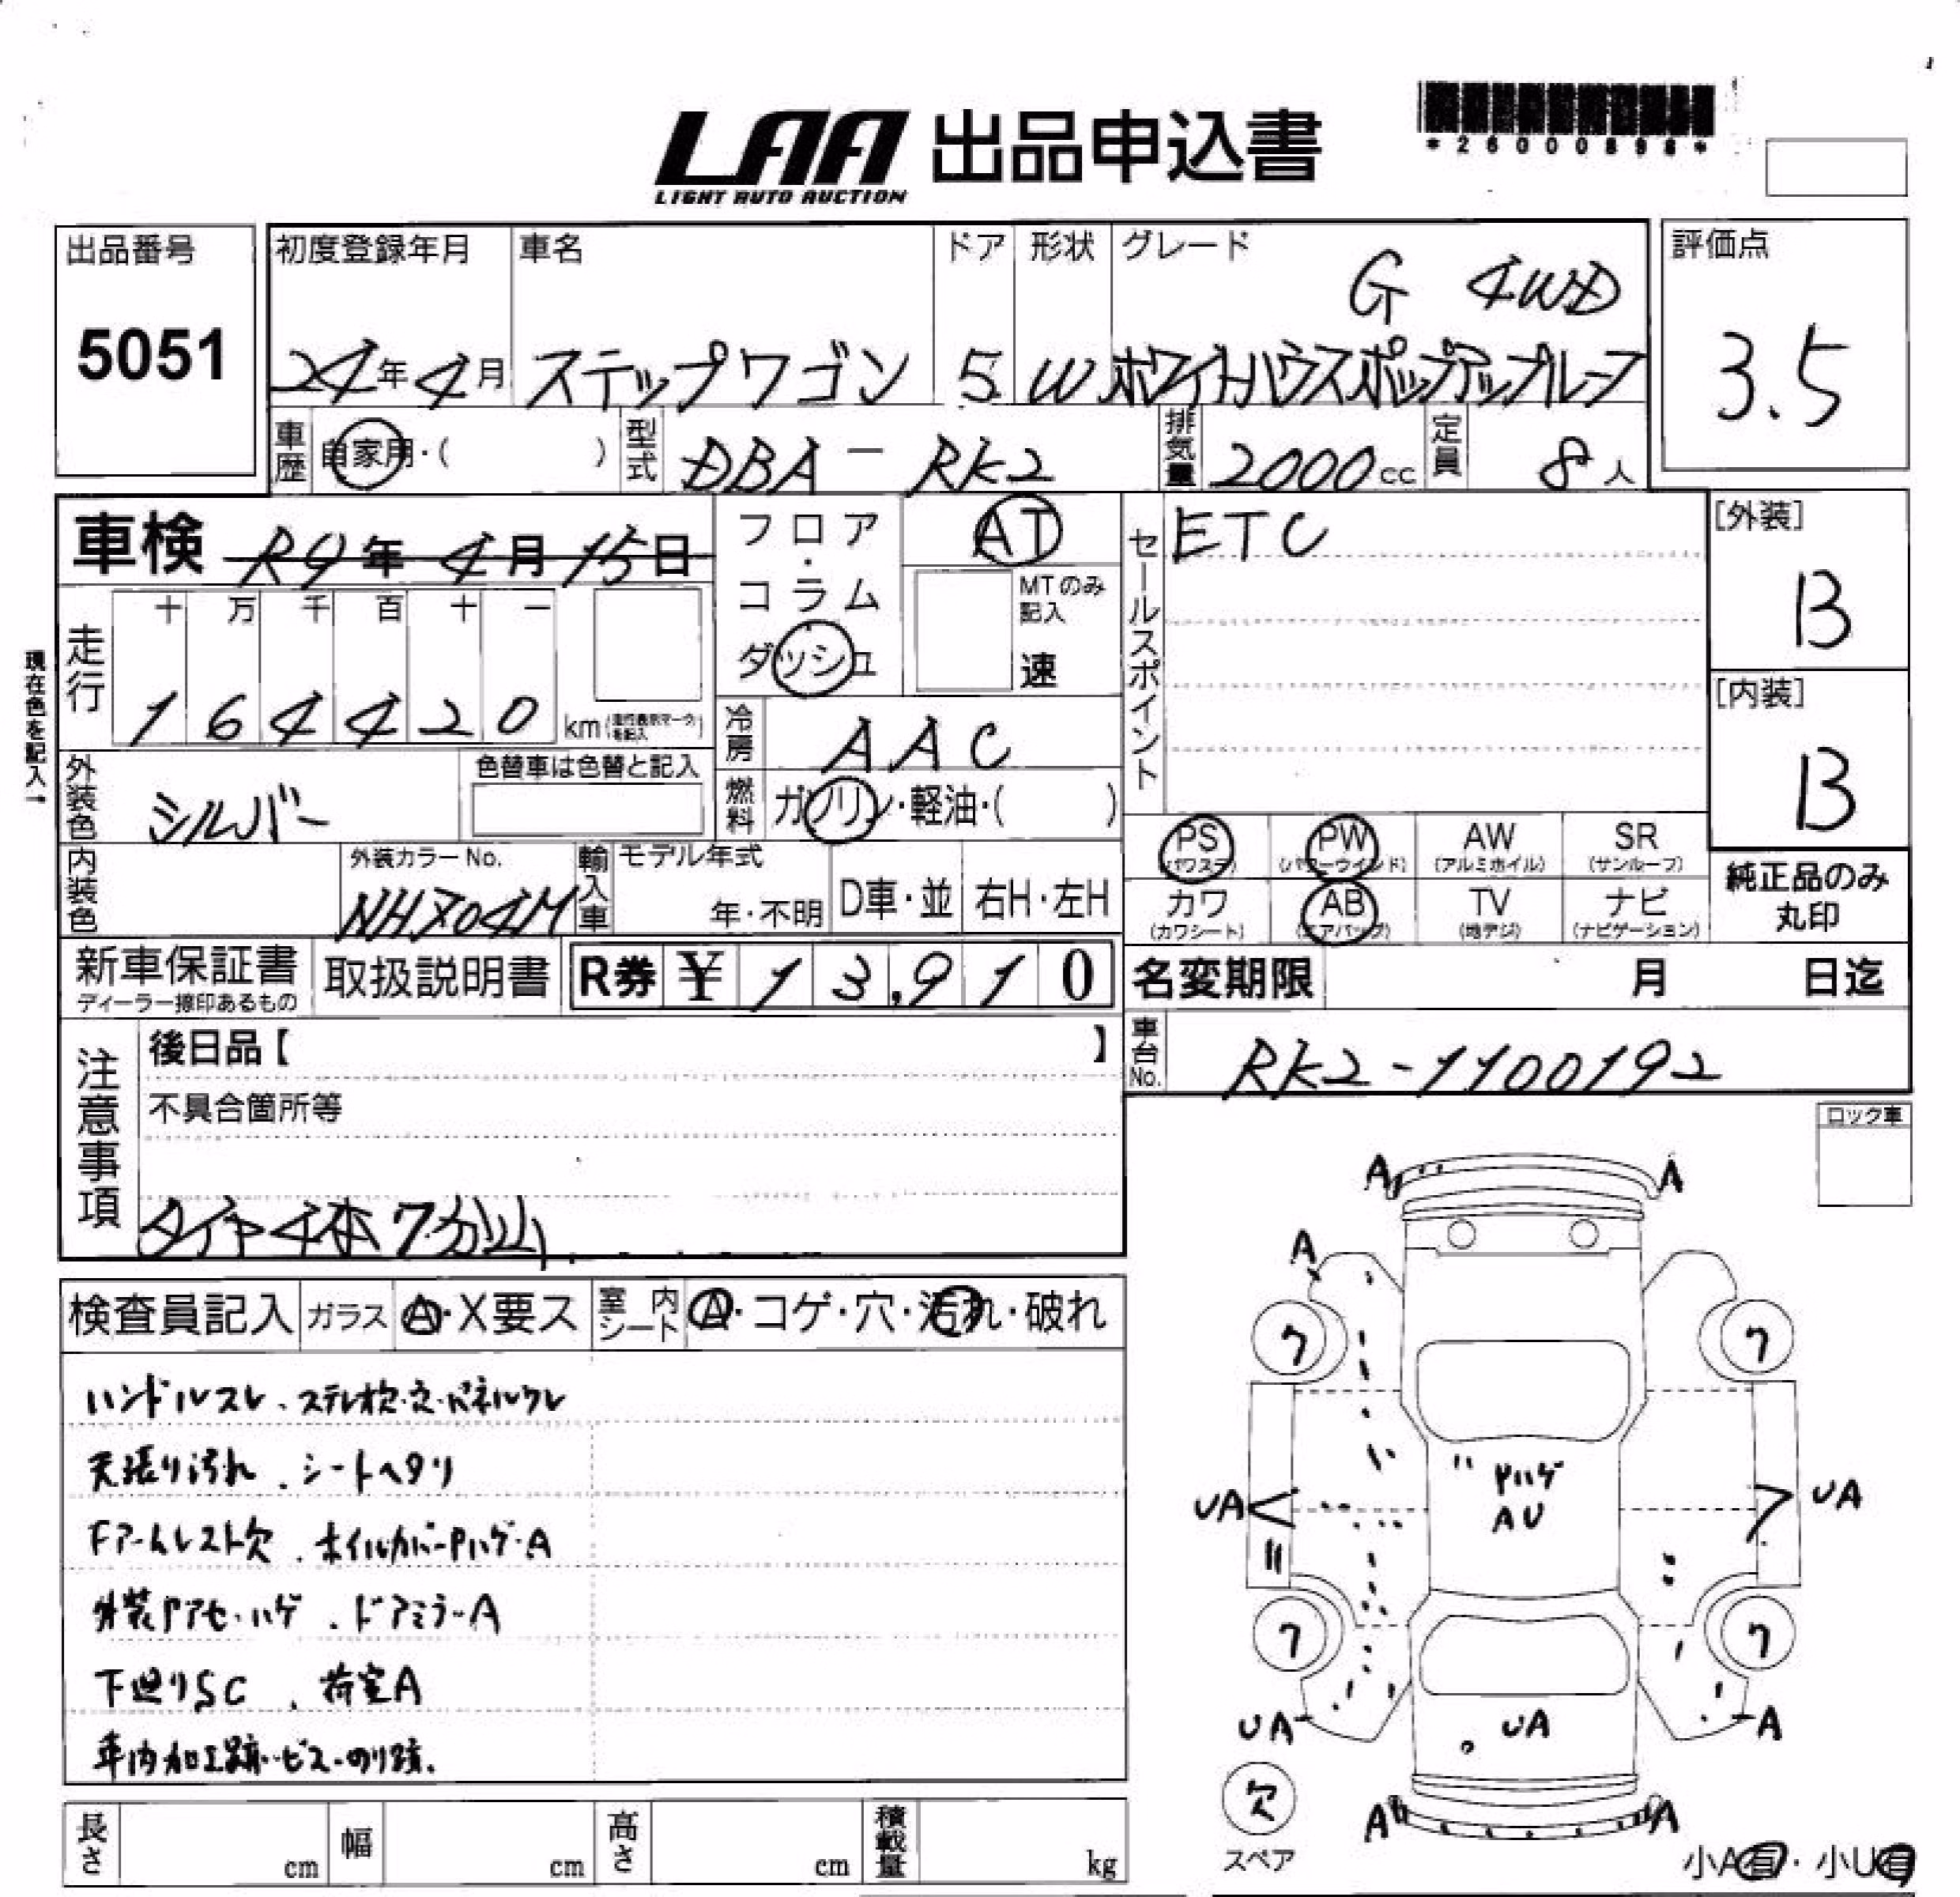 LAA 出品申込書
LIGHT AUTO AUCTION
*26000898*
出品番号
5051
初度登録年月
24年4月
車名
ステップワゴン
ドア
5
形状
W
グレード
G 4WD
ホワイトハウスポップアップルーフ
評価点
3.5
車歴
自家用・( )
型式
DBA-RK2
排気量
2000cc
定員
8人
車検 R9年4月15日
フロア・コラム
ダッシュ
AT
MTのみ記入
速
セールスポイント
ETC
[外装]
B
[内装]
B
現在色を記入→
走行
十 万 千 百 十 一
1 6 4 4 2 0 km
冷房
AAC
燃料
ガソリン・軽油・( )
外装色
シルバー
色替車は色替と記入
内装色
外装カラーNo.
NH704M
輸入車
モデル年式
年・不明
D車・並
右H・左H
PS
(パワステ)
PW
(パワーウインド)
AW
(アルミホイル)
SR
(サンルーフ)
カワ
(カワシート)
AB
(エアバッグ)
TV
(地デジ)
ナビ
(ナビゲーション)
純正品のみ
丸印
新車保証書
ディーラー捺印あるもの
取扱説明書
R券 ¥ 13,910
名変期限 月 日迄
車台No.
RK2-1100192
注意事項
後日品【 】
不具合箇所等
タイヤ4本7分山
ロック車
検査員記入
ガラス
A・X要ス
室内シート
A・コゲ・穴・汚れ・破れ
ハンドルスレ、ステレオ欠・穴・パネルワレ
天張り汚れ、シートヘタリ
Fアームレスト欠、ホイルカバーPハゲ・A
外装Pアセ・ハゲ、ドアミラーA
下廻りSC、荷室A
車内加工跡・ビス・のり跡.
A A
A
ワ ワ
Pハゲ
AU
UA UA
ワ ワ
UA UA A
欠
スペア
A A
小A有・小U有
長さ cm
幅 cm
高さ cm
積載量 kg